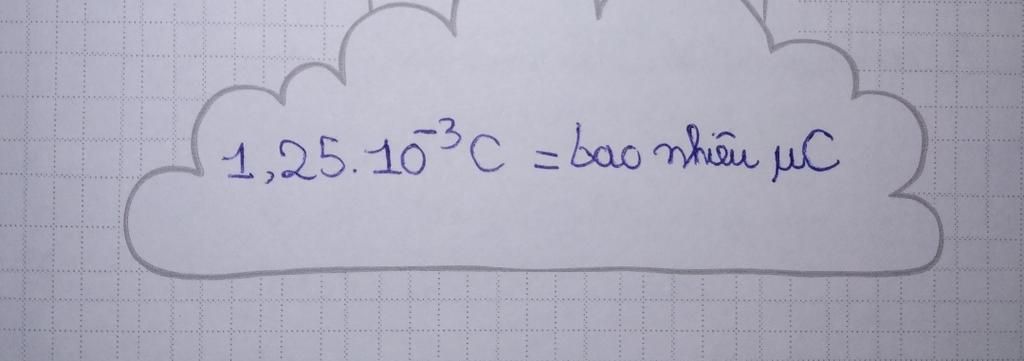 1,25.10⁻³C = bao nhiêu μC